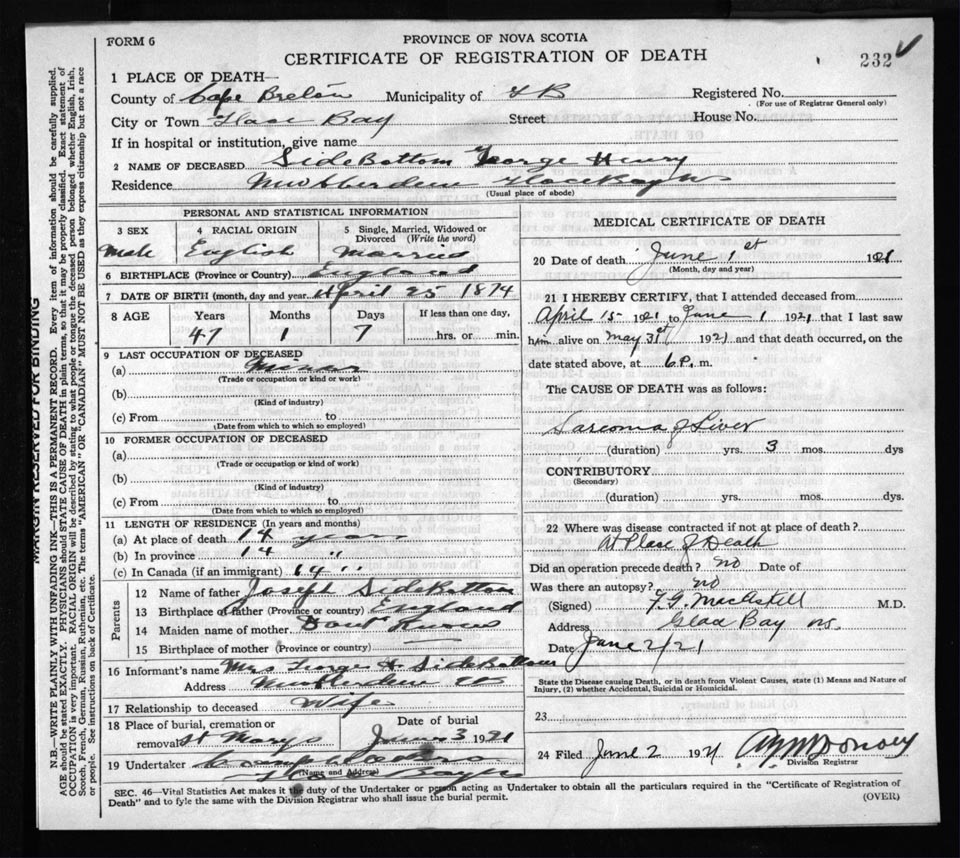 FORM 6
PROVINCE OF NOVA SCOTIA
CERTIFICATE OF REGISTRATION OF DEATH
232
1 PLACE OF DEATH—
County of Cape Breton Municipality of Registered No.
(For use of Registrar General only)
City or Town Glace Bay Street House No.
If in hospital or institution, give name
2 NAME OF DECEASED SideBottom George Henry
Residence New Aberdeen Glace Bay NS
(Usual place of abode)
PERSONAL AND STATISTICAL INFORMATION
3 SEX
Male
4 RACIAL ORIGIN
English
5 Single, Married, Widowed or Divorced (Write the word)
Married
6 BIRTHPLACE (Province or Country) England
7 DATE OF BIRTH (month, day and year April 25 1874
8 AGE Years Months Days If less than one day,
47 1 7 hrs. or min.
9 LAST OCCUPATION OF DECEASED
(a) Miner
(Trade or occupation or kind or work)
(b)
(Kind of industry)
(c) From to
(Date from which to which so employed)
10 FORMER OCCUPATION OF DECEASED
(a)
(Trade or occupation or kind of work)
(b)
(Kind of industry)
(c) From to
(Date from which to which so employed)
11 LENGTH OF RESIDENCE (In years and months)
(a) At place of death 14 years
(b) In province 14 "
(c) In Canada (if an immigrant) 14 "
Parents
12 Name of father Joseph SideBottom
13 Birthplace of father (Province or country) England
14 Maiden name of mother Dont Know
15 Birthplace of mother (Province or country)
16 Informant's name Mrs George H SideBottom
Address New Aberdeen CB
17 Relationship to deceased Wife
18 Place of burial, cremation or Date of burial
removal St Marys June 3 1921
19 Undertaker
(Name and Address)
MEDICAL CERTIFICATE OF DEATH
20 Date of death June 1st 1921
(Month, day and year)
21 I HEREBY CERTIFY, that I attended deceased from
April 15 1921 to June 1 1921 that I last saw
him alive on May 31st 1921 and that death occurred, on the
date stated above, at 6 P. m.
The CAUSE OF DEATH was as follows:
Sarcoma of Liver
(duration) yrs. 3 mos. dys
CONTRIBUTORY
(Secondary)
(duration) yrs. mos. dys.
22 Where was disease contracted if not at place of death?
At Place of Death
Did an operation precede death? no Date of
Was there an autopsy? no
(Signed) M.D.
Address Glace Bay NS
Date June 2/21
State the Disease causing Death, or in death from Violent Causes, state (1) Means and Nature of
Injury, (2) whether Accidental, Suicidal or Homicidal.
23
24 Filed June 2 1921
Division Registrar
SEC. 46—Vital Statistics Act makes it the duty of the Undertaker or person acting as Undertaker to obtain all the particulars required in the "Certificate of Registration of
Death" and to fyle the same with the Division Registrar who shall issue the burial permit.
(OVER)
MARGIN RESERVED FOR BINDING
N.B.—WRITE PLAINLY WITH UNFADING INK—THIS IS A PERMANENT RECORD. Every item of information should be carefully supplied.
AGE should be stated EXACTLY. PHYSICIANS should STATE CAUSE OF DEATH in plain terms, so that it may be properly classified. Exact statement of
OCCUPATION is very important. RACIAL ORIGIN will be described by stating to what people or tongue the deceased person belonged whether English, Irish,
Scotch, French, German, Russian, Ruthenian, etc. The terms "AMERICAN" OR "CANADIAN" MUST NOT BE USED as they express citizenship but not a race
or people. See instructions on back of Certificate.